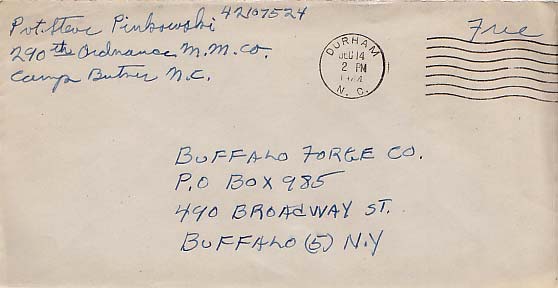 Pvt. Steve Pinkowski 42107524
290th Ordnance M.M. Co.
Camp Butner N.C.
DURHAM
DEC 14
2 PM
1944
N. C.
Free
BUFFALO FORGE CO.
P.O BOX 985
490 BROADWAY ST.
BUFFALO (5) N.Y